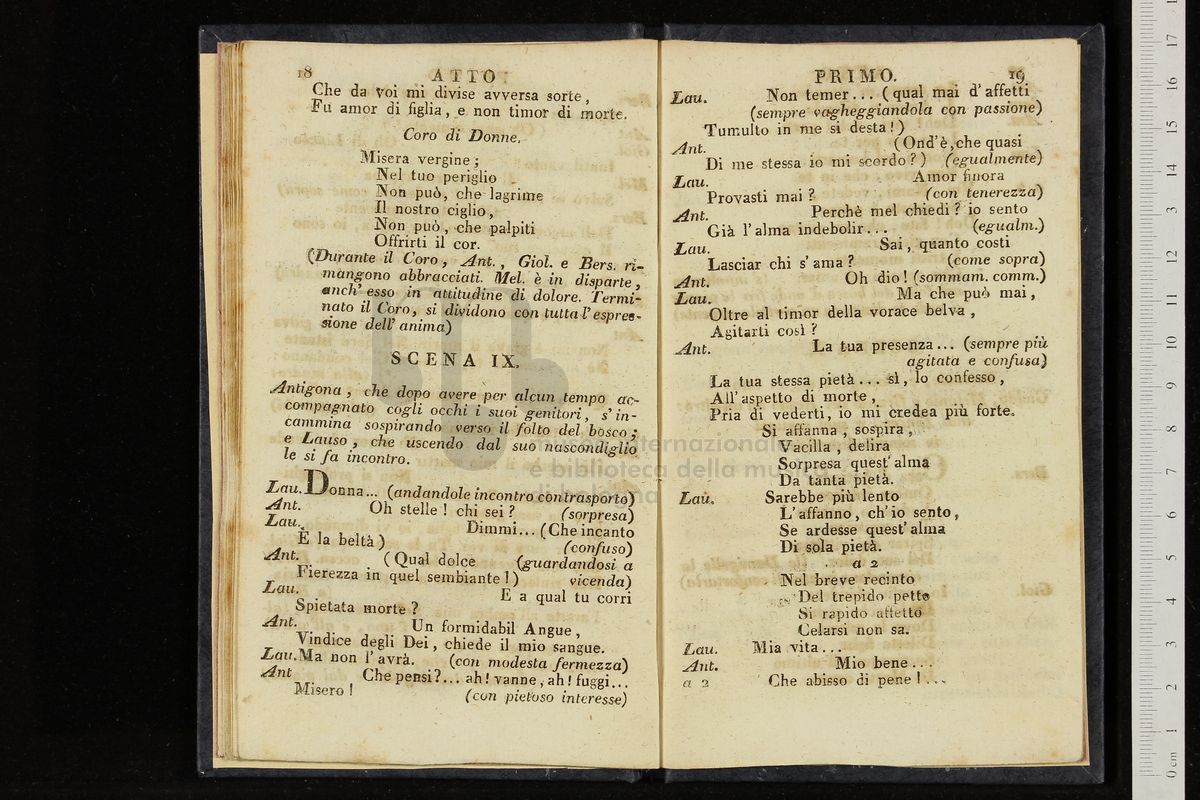 18 ATTO
Che da voi mi divise avversa sorte,
Fu amor di figlia, e non timor di morte.
Coro di Donne.
Misera vergine;
Nel tuo periglio
Non può, che lagrime
Il nostro ciglio,
Non può, che palpiti
Offrirti il cor.
(Durante il Coro, Ant., Giol. e Bers. ri-
mangono abbracciati. Mel. è in disparte,
anch' esso in attitudine di dolore. Termi-
nato il Coro, si dividono con tutta l' espres-
sione dell' anima)
SCENA IX.
Antigona, che dopo avere per alcun tempo ac-
compagnato cogli occhi i suoi genitori, s' in-
cammina sospirando verso il folto del bosco;
e Lauso, che uscendo dal suo nascondiglio
le si fa incontro.
Lau. Donna... (andandole incontro con trasporto)
Ant. Oh stelle! chi sei? (sorpresa)
Lau. Dimmi... (Che incanto
È la beltà) (confuso)
Ant. (Qual dolce (guardandosi a
Fierezza in quel sembiante!) vicenda)
Lau. E a qual tu corri
Spietata morte?
Ant. Un formidabil Angue,
Vindice degli Dei, chiede il mio sangue.
Lau. Ma non l' avrà. (con modesta fermezza)
Ant Che pensi?... ah! vanne, ah! fuggi...
Misero! (con pietoso interesse)
PRIMO. 19
Lau. Non temer... (qual mai d' affetti
(sempre vagheggiandola con passione)
Tumulto in me si desta!)
Ant. (Ond' è, che quasi
Di me stessa io mi scordo?) (egualmente)
Lau. Amor finora
Provasti mai? (con tenerezza)
Ant. Perchè mel chiedi? io sento
Già l' alma indebolir... (egualm.)
Lau. Sai, quanto costi
Lasciar chi s' ama? (come sopra)
Ant. Oh dio! (sommam. comm.)
Lau. Ma che può mai,
Oltre al timor della vorace belva,
Agitarti così?
Ant. La tua presenza... (sempre più
agitata e confusa)
La tua stessa pietà... sì, lo confesso,
All' aspetto di morte,
Pria di vederti, io mi credea più forte.
Si affanna, sospira,
Vacilla, delira
Sorpresa quest' alma
Da tanta pietà.
Lau. Sarebbe più lento
L' affanno, ch' io sento,
Se ardesse quest' alma
Di sola pietà.
a 2
Nel breve recinto
Del trepido petto
Si rapido affetto
Celarsi non sa.
Lau. Mia vita...
Ant. Mio bene...
a 2 Che abisso di pene!...
museo internazionale
e biblioteca della musica
di bologna
0 cm 1 2 3 4 5 6 7 8 9 10 11 12 13 14 15 16 17